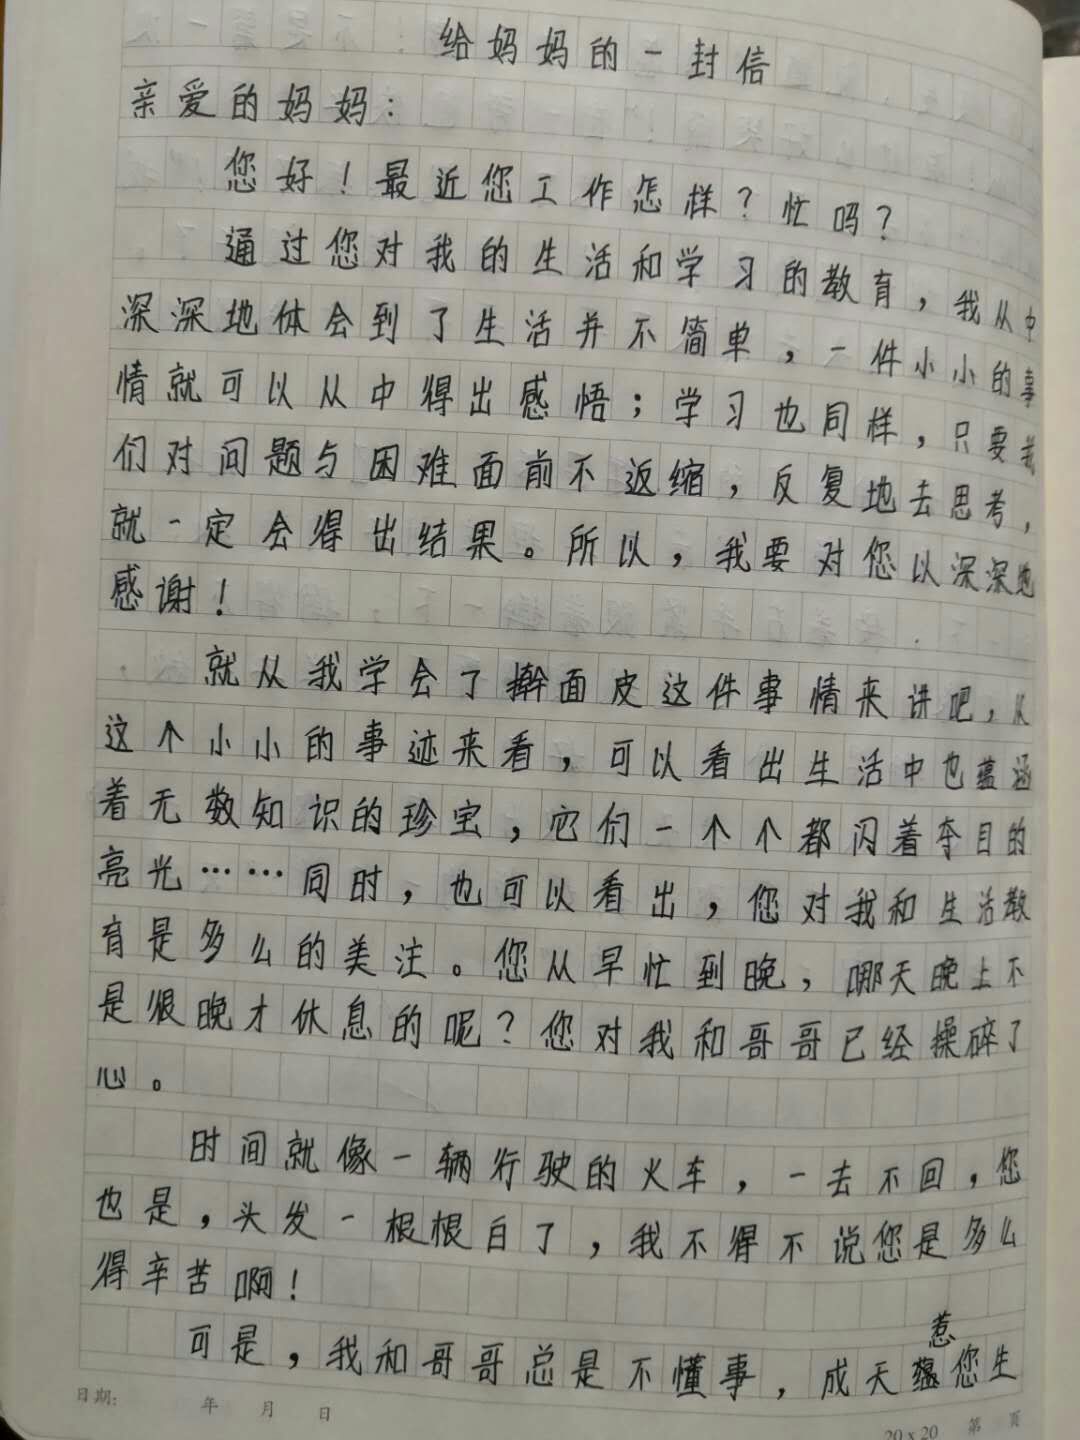 给妈妈的一封信
亲爱的妈妈：
您好！最近您工作怎样？忙吗？
通过您对我的生活和学习的教育，我从中
深深地体会到了生活并不简单，一件小小的事
情就可以从中得出感悟；学习也同样，只要我
们对问题与困难面前不返缩，反复地去思考，
就一定会得出结果。所以，我要对您以深深地
感谢！
就从我学会了擀面皮这件事情来讲吧，从
这个小小的事迹来看，可以看出生活中也蕴涵
着无数知识的珍宝，它们一个个都闪着夺目的
亮光……同时，也可以看出，您对我和生活教
育是多么的美注。您从早忙到晚，哪天晚上不
是很晚才休息的呢？您对我和哥哥已经操碎了
心。
时间就像一辆行驶的火车，一去不回，您
也是，头发一根根白了，我不得不说您是多么
得辛苦啊！
惹
可是，我和哥哥总是不懂事，成天您生
日期： 年 月 日
20×20 第 页